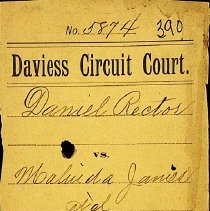 No. 5874 390
Daviess Circuit Court.
Daniel Rector
vs.
Malinda James